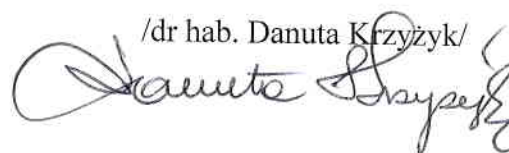 /dr hab. Danuta Krzyżyk/
Danuta Krzyżyk